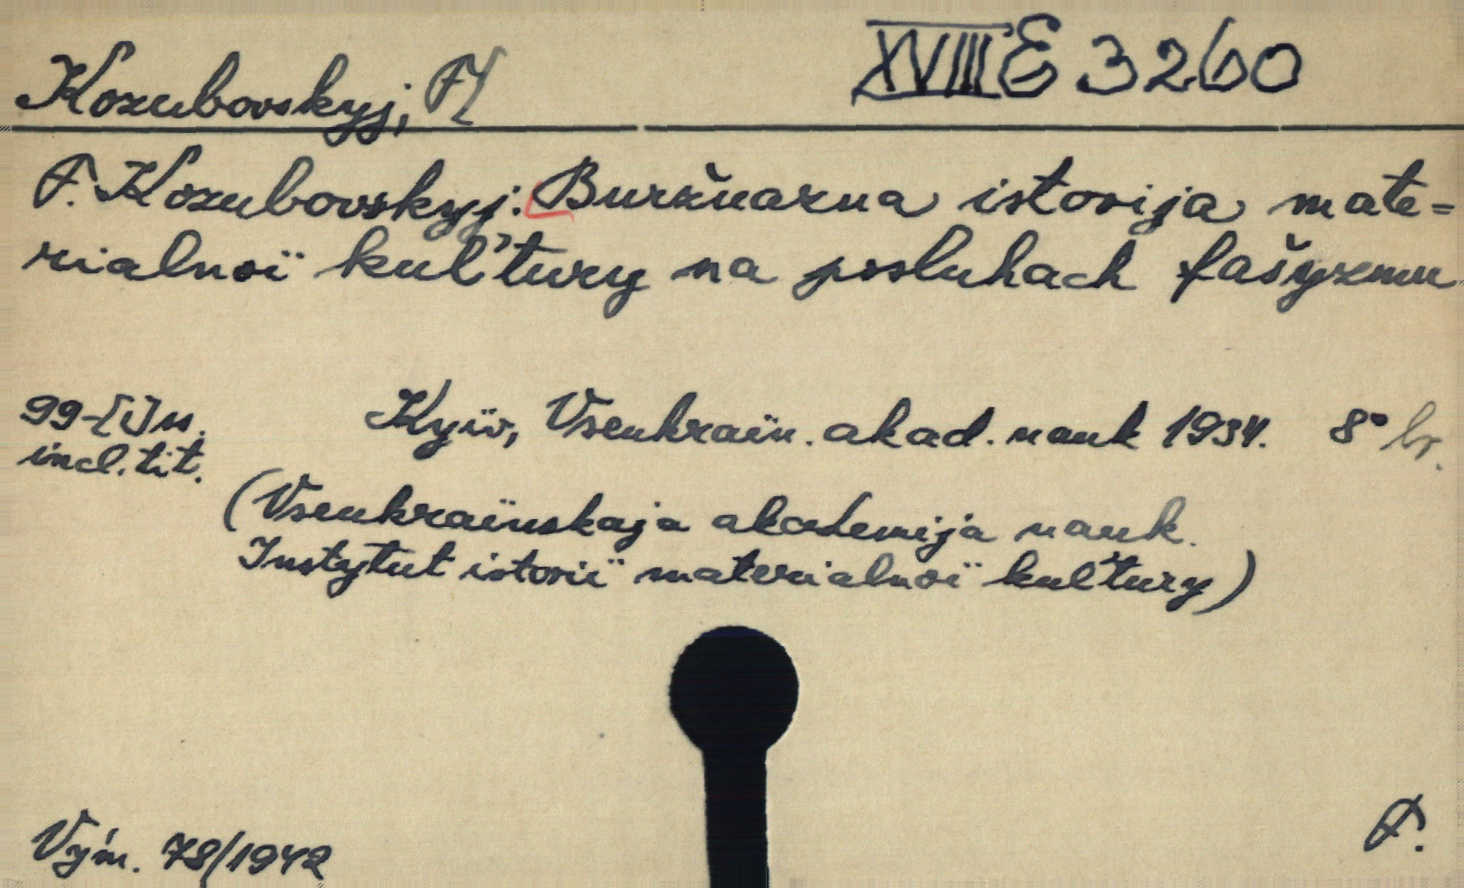 XVIII E 3260
Kozubovskyj, F
F. Kozubovskyj: Buržuazna istorija mate=
rialnoï kul'tury na posluhach fašyzmu
99-[1] s.
incl. tit.
Kyïv, Vseukraïn. akad. nauk 1934. 8° br.
(Vseukraïnskaja akademija nauk.
Instytut istoriï materialnoï kul'tury)
Vým. 78/1942
F.